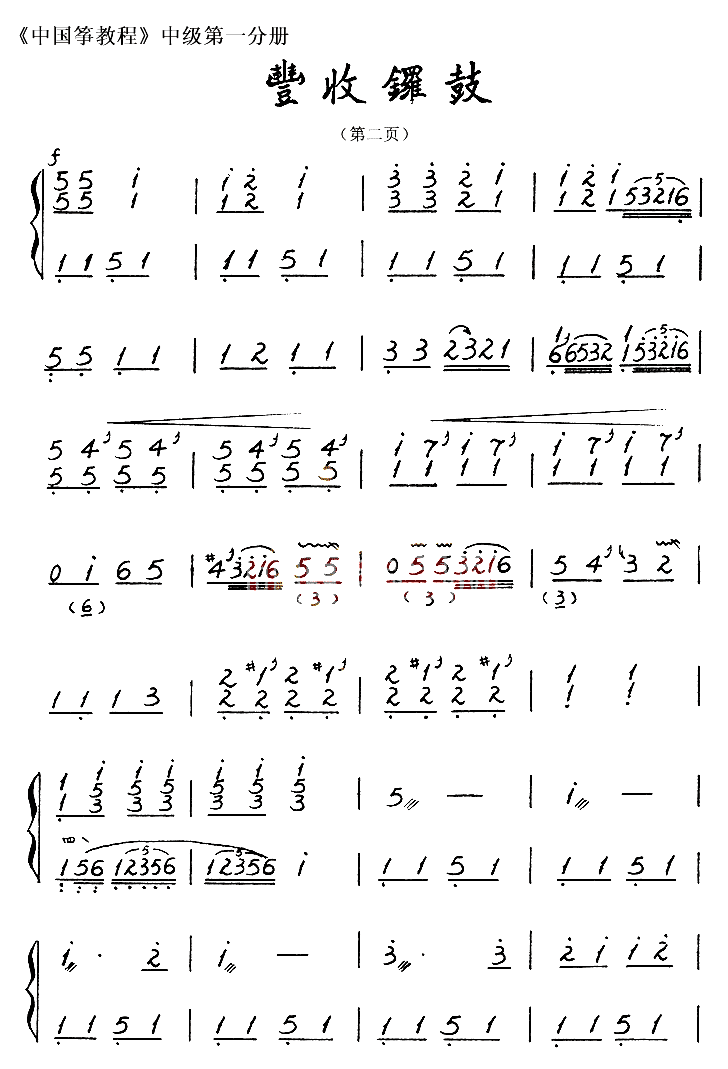 《中国筝教程》中级第一分册
豐收鑼鼓
（第二页）
f
5 5 i | i 2 i | 3 3 2 i | i 2 i 5
5 5 1 | 1 2 1 | 3 3 2 1 | 1 2 1 53216
1 1 5 1 | 1 1 5 1 | 1 1 5 1 | 1 1 5 1
5 5 1 1 | 1 2 1 1 | 3 3 2321 | 66532 153216
5 4 5 4 | 5 4 5 4 | i 7 i 7 | i 7 i 7
5 5 5 5 | 5 5 5 5 | 1 1 1 1 | 1 1 1 1
0 i 6 5 | #4 3216 5 5 | 0 5 5 3216 | 5 4 3 2
(6) (3) (3) (3)
1 1 1 3 | 2 #1 2 #1 | 2 #1 2 #1 | 1 1
2 2 2 2 | 2 2 2 2 | 1 1
1 i i i | i i i | 5 — | i —
5 5 5 | 5 5 5
1 3 3 3 | 3 3 3
四、
156 12356 | 12356 i | 1 1 5 1 | 1 1 5 1
i · 2 | i — | 3 · 3 | 2 i i 2
1 1 5 1 | 1 1 5 1 | 1 1 5 1 | 1 1 5 1